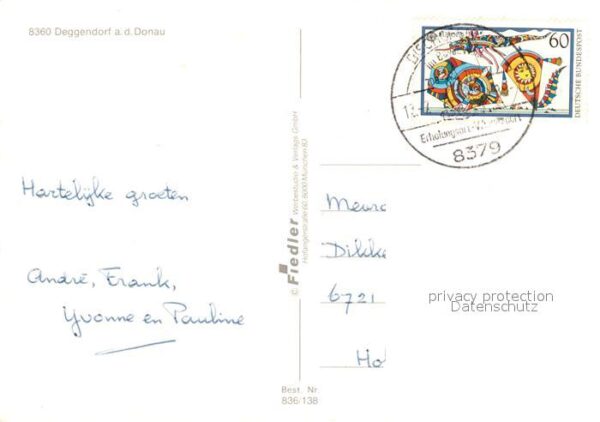 8360 Deggendorf a. d. Donau
Hartelijke groeten
André, Frank,
Yvonne en Pauline
© Fiedler Werbestudio & Verlags GmbH
Hofangerstraße 60, 8000 München 82
Best. Nr.
836/138
60
DEUTSCHE BUNDESPOST
8379
Meur
Dikke
6721
Ho
privacy protection
Datenschutz